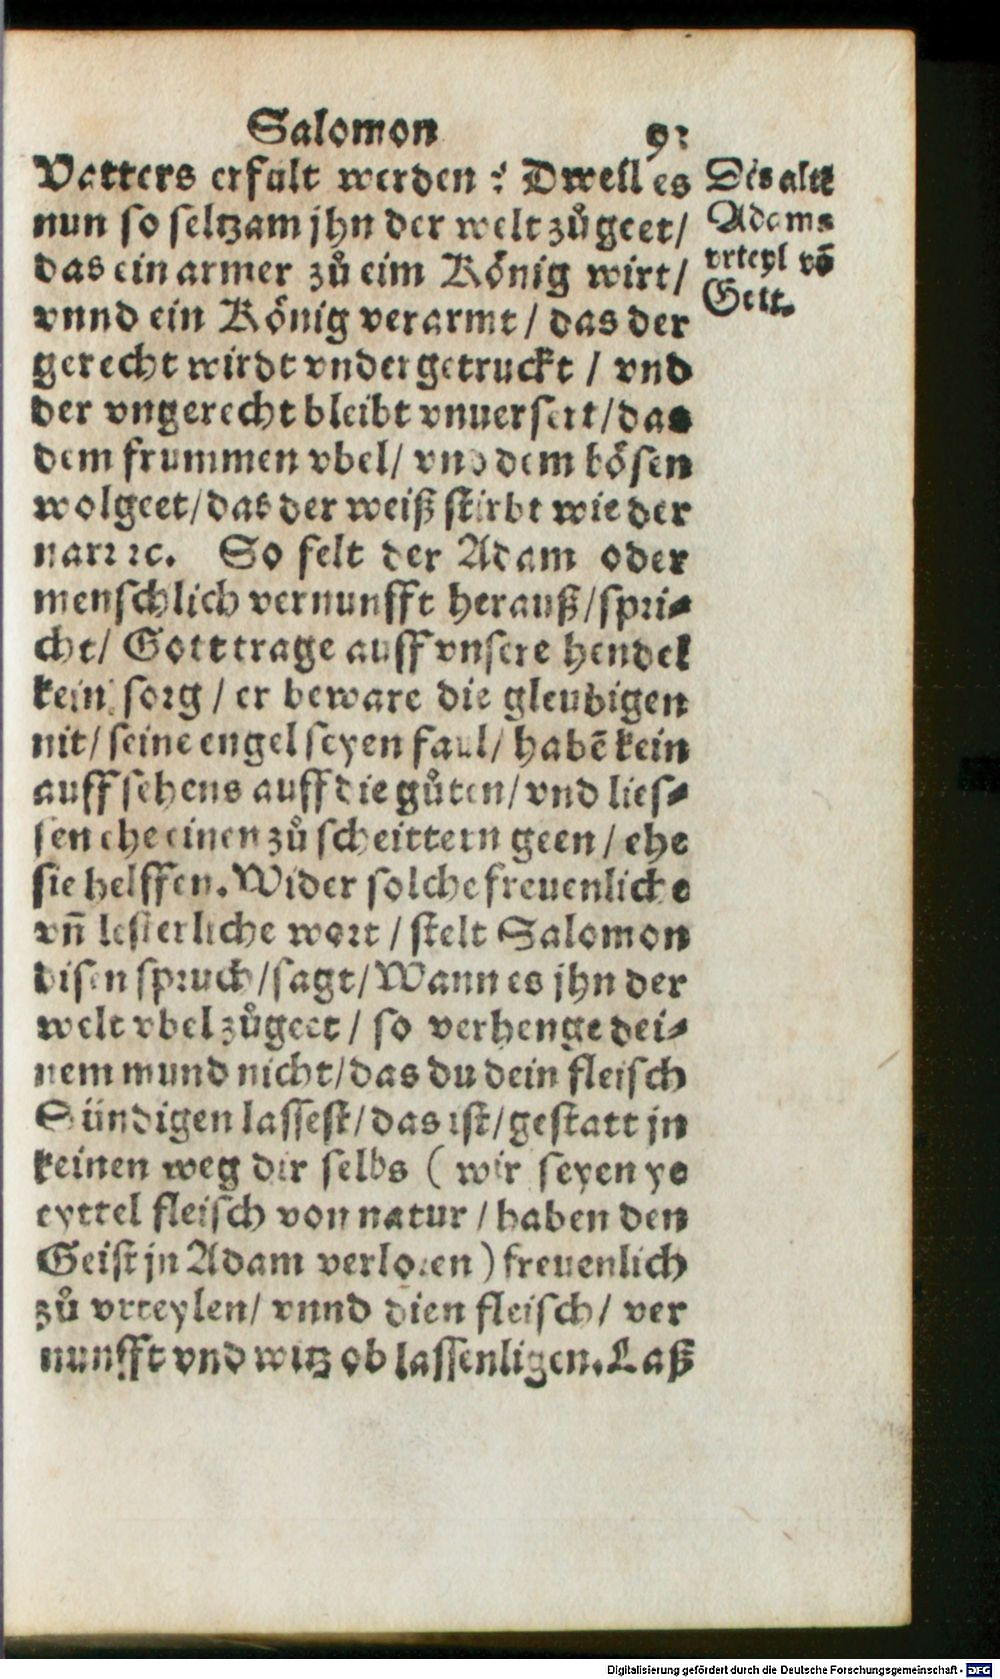 Salomon
Vatters erfult werden? Dweil es
nun so seltzam jhn der welt zůgeet/
das ein armer zů eim König wirt/
vnnd ein König verarmt / das der
gerecht wirdt vndergetruckt / vnd
der vngerecht bleibt vnuersert/das
dem frummen vbel/ vnd dem bösen
wolgeet/das der weiß stirbt wie der
narr ꝛc. So felt der Adam oder
menschlich vernunfft herauß/spri⸗
cht/ Gott trage auff vnsere hendel
kein sorg / er beware die gleubigen
nit/ seine engel seyen faul/ habē kein
auffsehens auff die gůten/ vnd lies⸗
sen ehe einen zů scheittern geen / ehe
sie helffen. Wider solche freuenliche
vñ lesterliche wort / stelt Salomon
disen spruch/sagt/Wann es jhn der
welt vbel zůgeet / so verhenge dei⸗
nem mund nicht/das du dein fleisch
Sündigen lassest/das ist/gestatt jn
keinen weg dir selbs ( wir seyen ye
eyttel fleisch von natur / haben den
Geist jn Adam verloren ) freuenlich
zů vrteylen/ vnnd dien fleisch/ ver
nunfft vnd witz ob lassen ligen. Laß
Des altē
Adams
vrteyl vō
Gott.
Digitalisierung gefördert durch die Deutsche Forschungsgemeinschaft - DFG